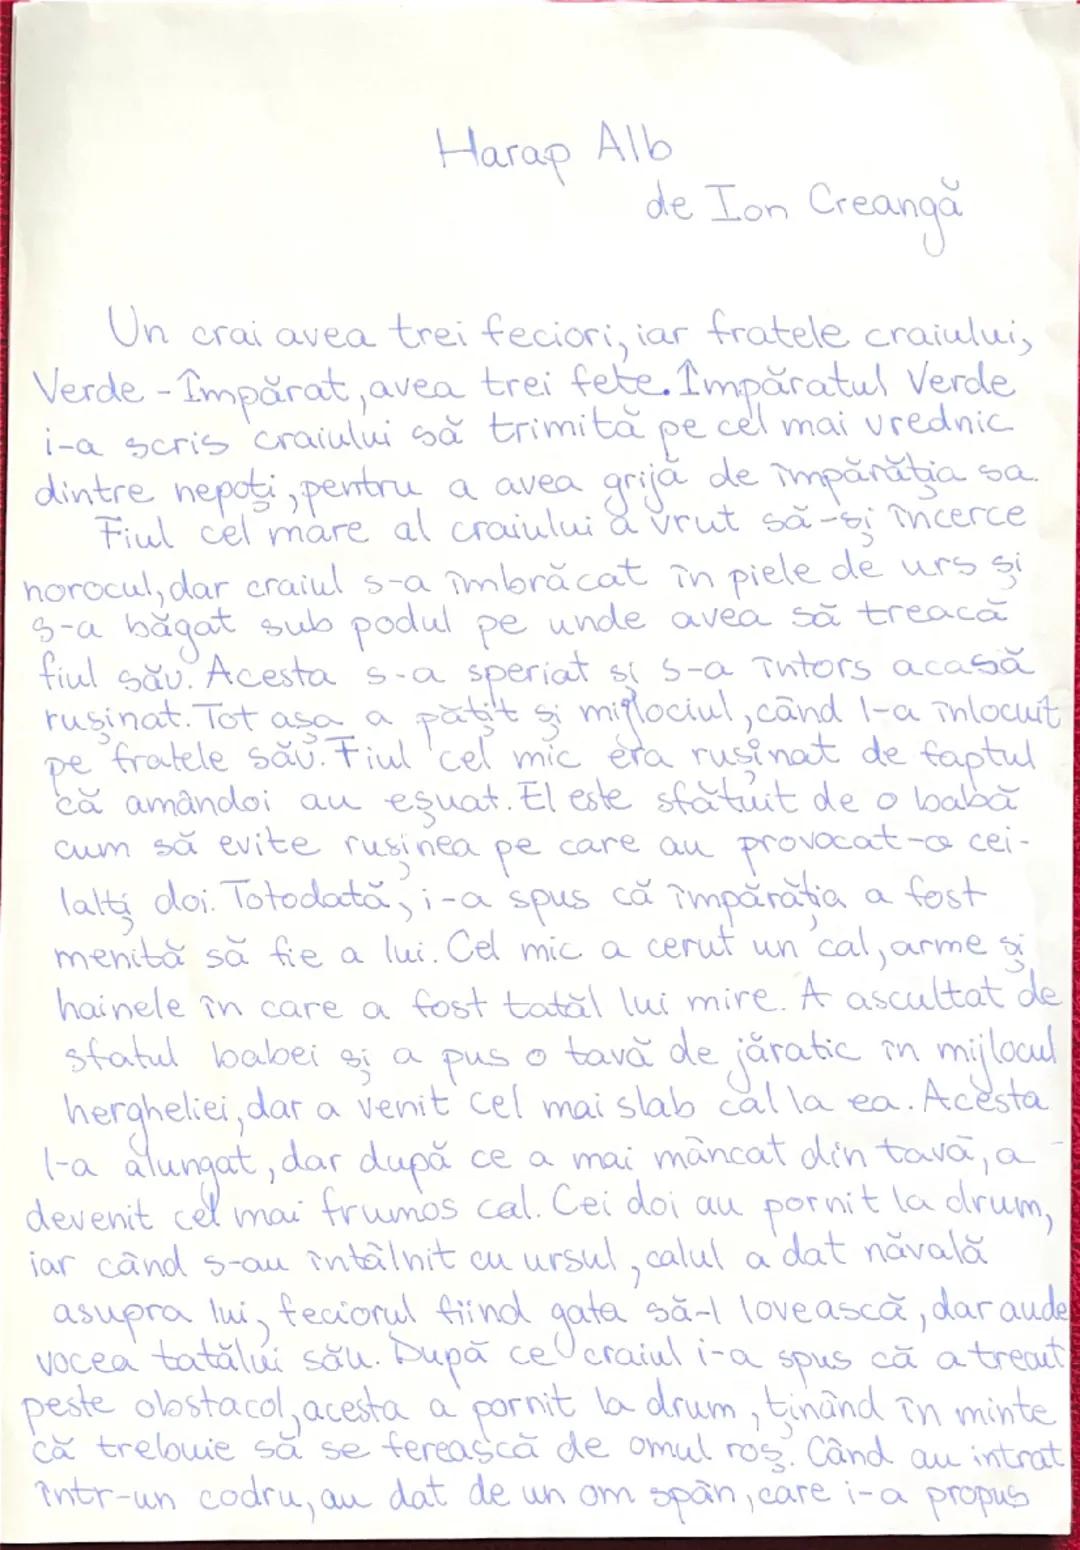 Harap Alb
de Ion Creangă
Un crai avea trei feciori, iar fratele craiului,
Verde-Împărat, avea trei fete. Împăratul Verde
i-a scris craiului să trimită pe cel mai vrednic
dintre nepoți, pentru a avea grijă de împărăția sa.
Fiul cel mare al craiului a vrut să-și încerce
norocul, dar craiul s-a îmbrăcat în piele de urs și
s-a băgat sub podul pe unde avea să treacă
fiul său. Acesta s-a speriat și s-a întors acasă
rușinat. Tot așa a pățit și mijlociul, când l-a înlocuit
pe fratele său. Fiul cel mic era rușinat de faptul
că amândoi au eșuat. El este sfătuit de o babă
cum să evite rușinea pe care au provocat-o cei-
lalți doi. Totodată, i-a spus că împărăția a fost
menită să fie a lui. Cel mic a cerut un cal, arme și
hainele în care a fost tatăl lui mire. A ascultat de
sfatul babei și a pus o tavă de jăratic în mijlocul
hergheliei, dar a venit cel mai slab cal la ea. Acesta
l-a alungat, dar după ce a mai mâncat din tavă, a
devenit cel mai frumos cal. Cei doi au pornit la drum,
iar când s-au întâlnit cu ursul, calul a dat năvală
asupra lui, feciorul fiind gata să-l lovească, dar aude
vocea tatălui său. După ce craiul i-a spus că a trecut
peste obstacol, acesta a pornit la drum, ținând în minte
că trebuie să se ferească de omul roș. Când au intrat
într-un codru, au dat de un om spân, care i-a propus